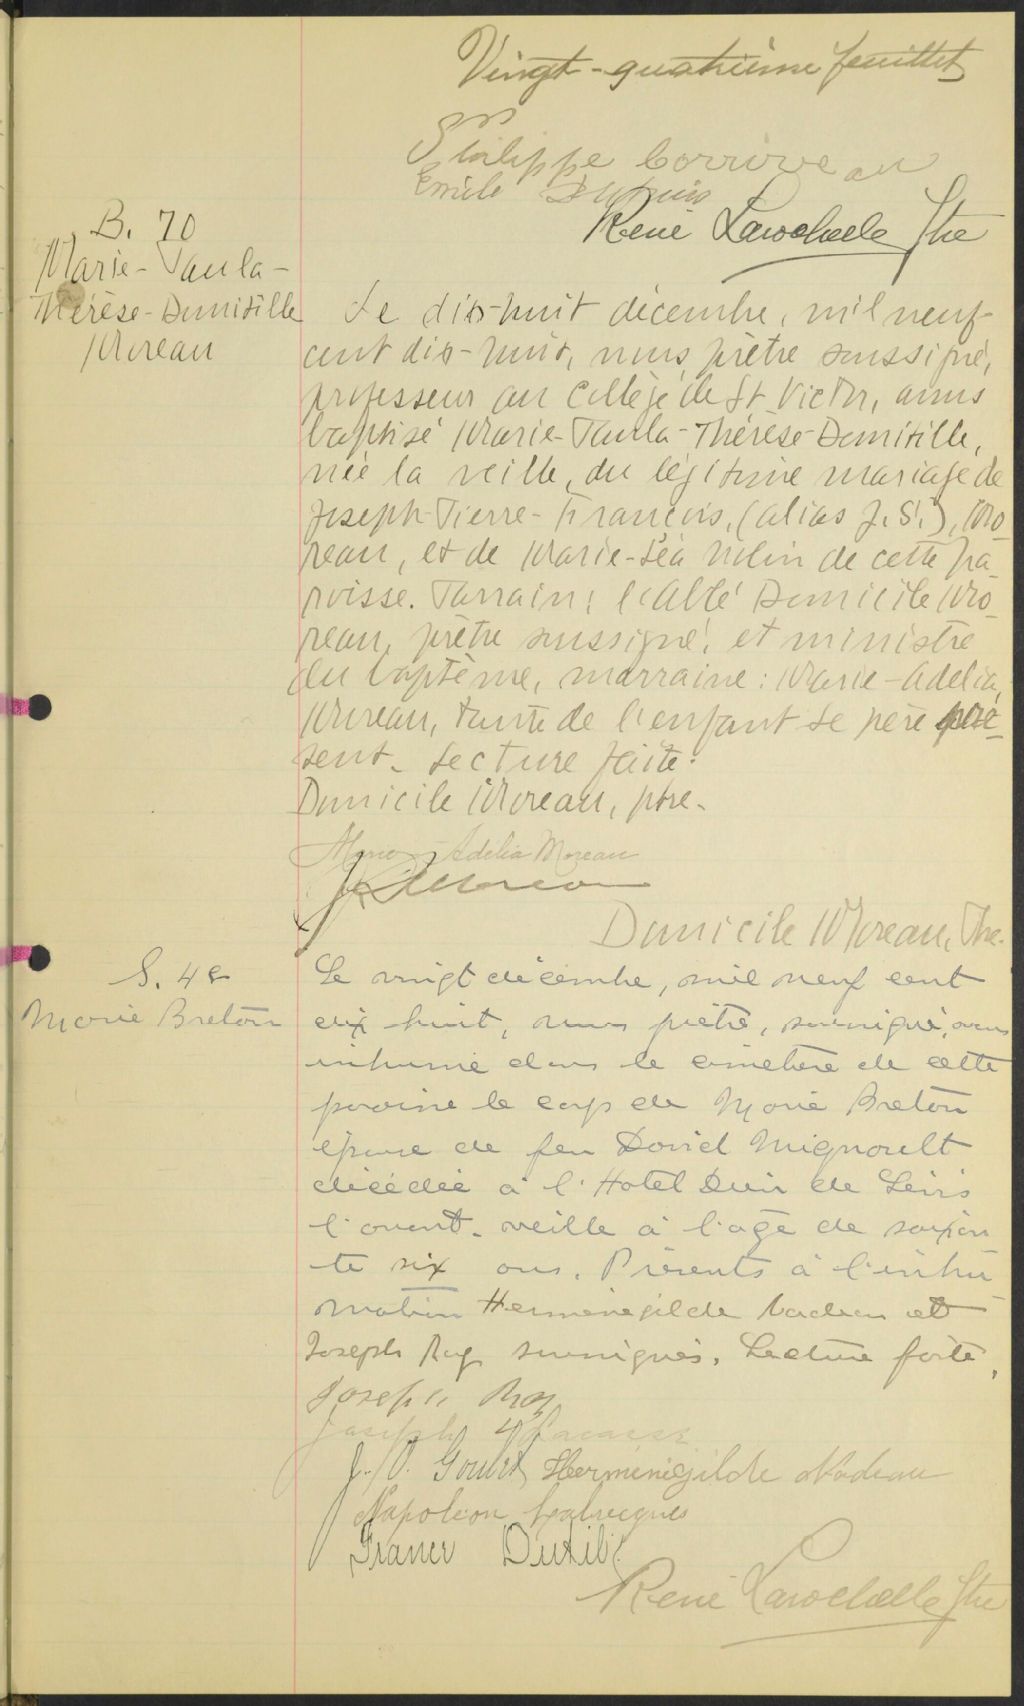 Vingt-quatrième feuillet
Philippe Corriveau
Emile Dupuis
René Larochelle Ptre
B. 70
Marie-Paula-
Thérèse-Domitille
Moreau
Le dix-huit décembre, mil neuf-
cent dix-huit, nous, prêtre soussigné,
professeur au Collège de St Victor, avons
baptisé Marie-Paula-Thérèse-Domitille,
née la veille, du légitime mariage de
Joseph-Pierre-François, (alias J. S.), Mo-
reau, et de Marie-Léa Nolin de cette pa-
roisse. Parrain: l'Abbé Domicile Mo-
reau, prêtre soussigné, et ministre
du baptême, marraine: Marie-Adélia,
Moreau, tante de l'enfant Le père pré-
sent. Lecture faite.
Domicile Moreau, ptre.
Marie Adélia Moreau
Moreau
Domicile Moreau, Ptre.
S. 48
Marie Breton
Le vingt décembre, mil neuf cent
dix huit, nous prêtre, soussigné, avons
inhumé dans le cimetière de cette
paroisse le corps de Marie Breton
épouse de feu David Mignault
décédée à l'Hotel Dieu de Lévis
l'avant-veille à l'age de soixan
te six ans. Présents à l'inhu
mation Herménégilde Nadeau et
Joseph Roy soussignés. Lecture faite.
Joseph Roy
Joseph Lacasse
J. Goulet Herménégilde Nadeau
Napoleon Labrecque
Dutil
René Larochelle Ptre